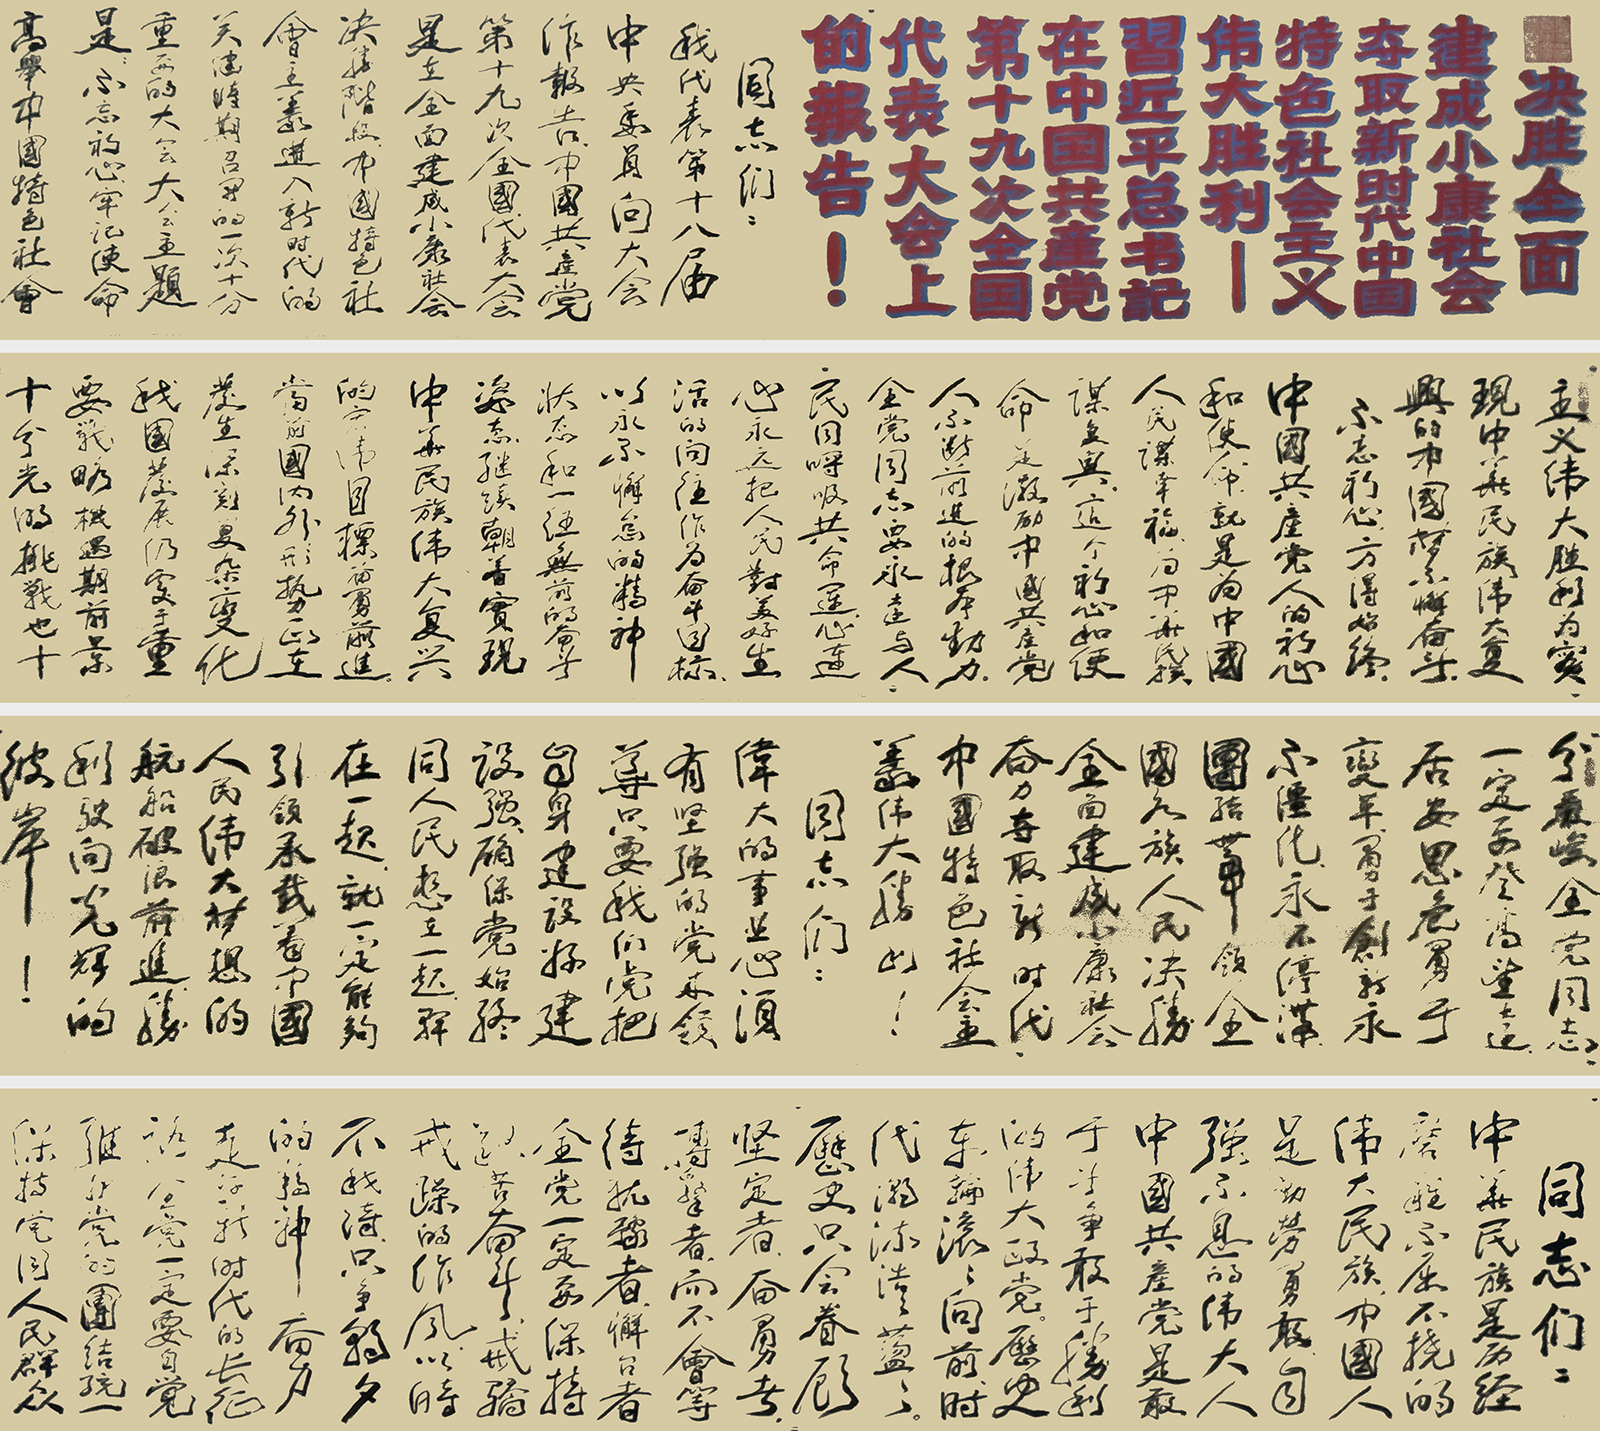 决胜全面
建成小康社会
夺取新时代中国
特色社会主义
伟大胜利—
習近平总书記
在中国共產党
第十九次全国
代表大会上
的報告！
同志们：
我代表第十八届
中央委員向大会
作報告、中國共產党
第十九次全國代表大会
是在全面建成小康社会
决勝階段、中國特色社
會主義進入新时代的
关健時期召開的一次十分
重要的大会大会主題
是：不忘初心牢記使命
高舉中國特色社會
主义伟大胜利为實
現中華民族伟大复
興的中國梦不懈奋斗.
不忘初心、方得始终.
中國共產党人的初心
和使命、就是为中國
人民谋幸福、为中華民族
谋复興、这个初心和使
命是激励中國共產党
人不断前進的根本動力.
全党同志要永遠与人
民同呼吸共命運心連
心永远把人民對美好生
活的向往作为奋斗目标.
以永不懈怠的精神
状态和一往無前的奋斗
姿态、继续朝着實現
中華民族伟大复兴
的宏伟目標奋勇前進.
当前國内外形势正在
發生深刻复杂變化
我國發展仍處于重
要戰略機遇期前景
十分光明挑戰也十
分嚴峻全党同志
一定要登高望远
居安思危勇于
變革勇于創新永
不僵化、永不停滞
團结带領全
國各族人民决勝
全面建成小康社会
奋力夺取新时代
中國特色社会主
義伟大勝利！
同志们：
偉大的事业必須
有坚强的党来領
導只要我们党把
自身建设好建
设强、确保党始终
同人民想在一起、幹
在一起、就一定能夠
引領承载着中國
人民伟大梦想的
航船破浪前進、勝
利驶向光輝的
彼岸！
同志们：
中華民族是历经
磨難不屈不挠的
伟大民族、中國人
是勤劳勇敢、自
强不息的伟大人
中國共產党是敢
于斗争敢于勝利
的伟大政党。歷史
车輪滚滚向前、时
代潮流浩浩蕩蕩。
歷史只会眷顾
坚定者、奋勇者、
搏擊者、而不會等
待犹豫者、懈怠者
全党一定要保持
艱苦奋斗、戒骄
戒躁的作风、以時
不我待、只争朝夕
的精神—奋力
走好新时代的长征
路全党一定要自觉
維护党的團结统一
保持党同人民群众